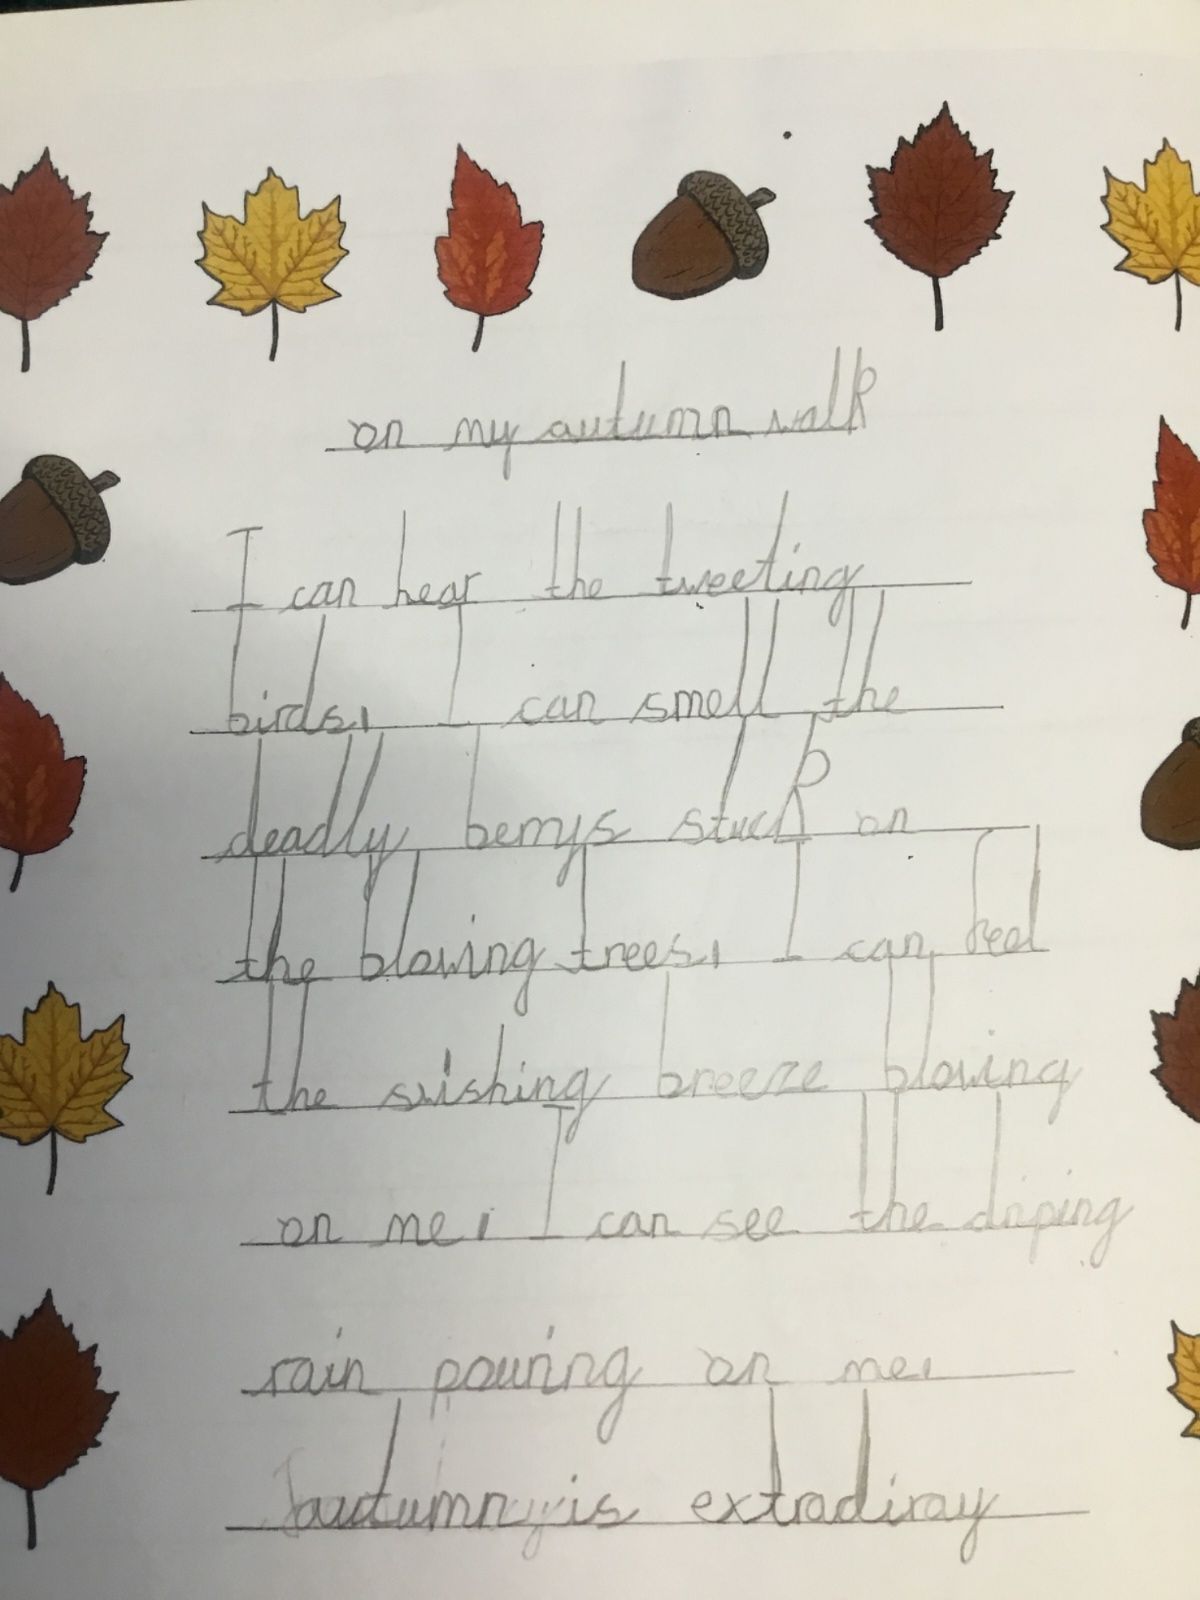 on my autumn walk
I can hear the tweeting
birds, I can smell the
deadly berrys stuck on
the blowing trees, I can feel
the swishing breeze blowing
on me, I can see the driping
rain pouring on me,
autumn is extradiray